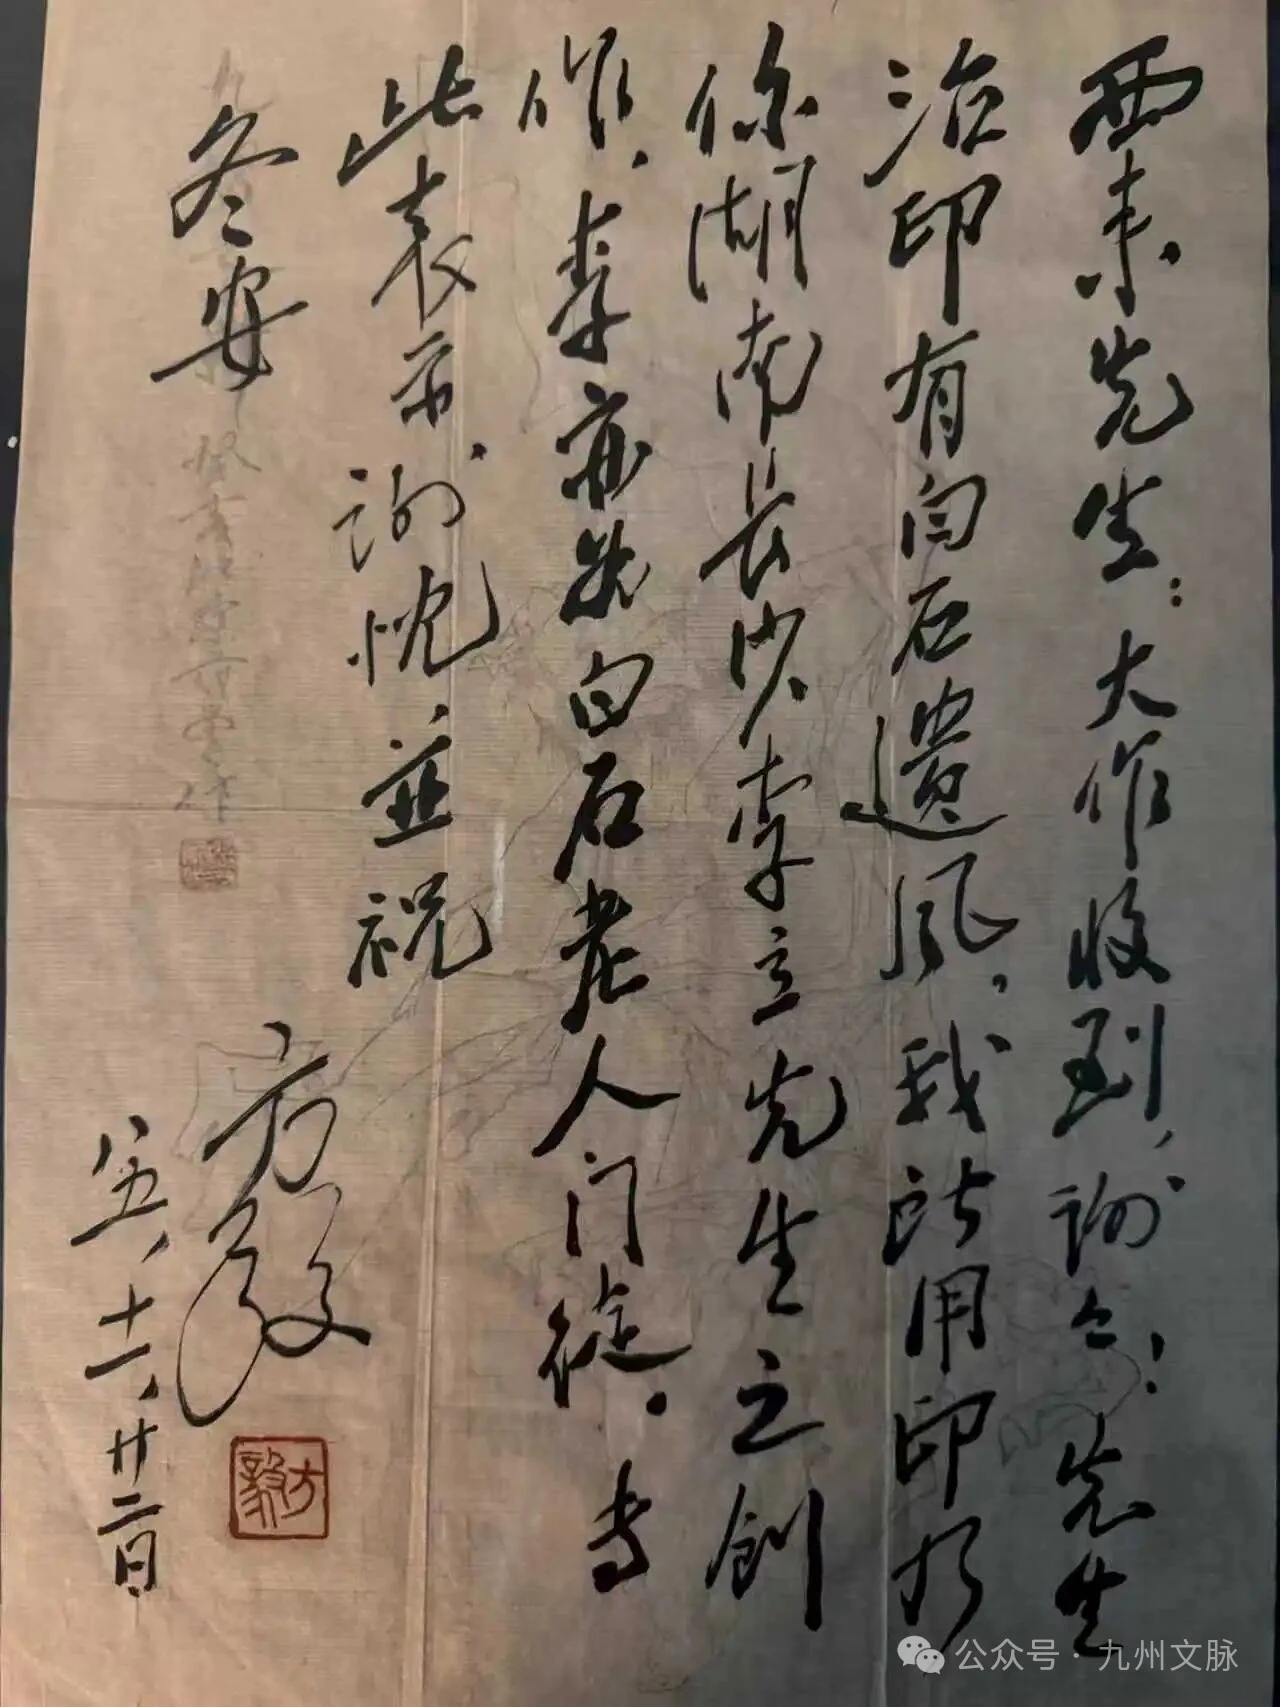 西来先生：大作收到、谢々！先生
治印有白石遗风，我所用印均
係湖南長沙李立先生之创
作、李亦为白石老人门徒。专
此表示、谢忱並祝
冬安
方毅
八五、十一、廿二日
方毅
公众号·九州文脉